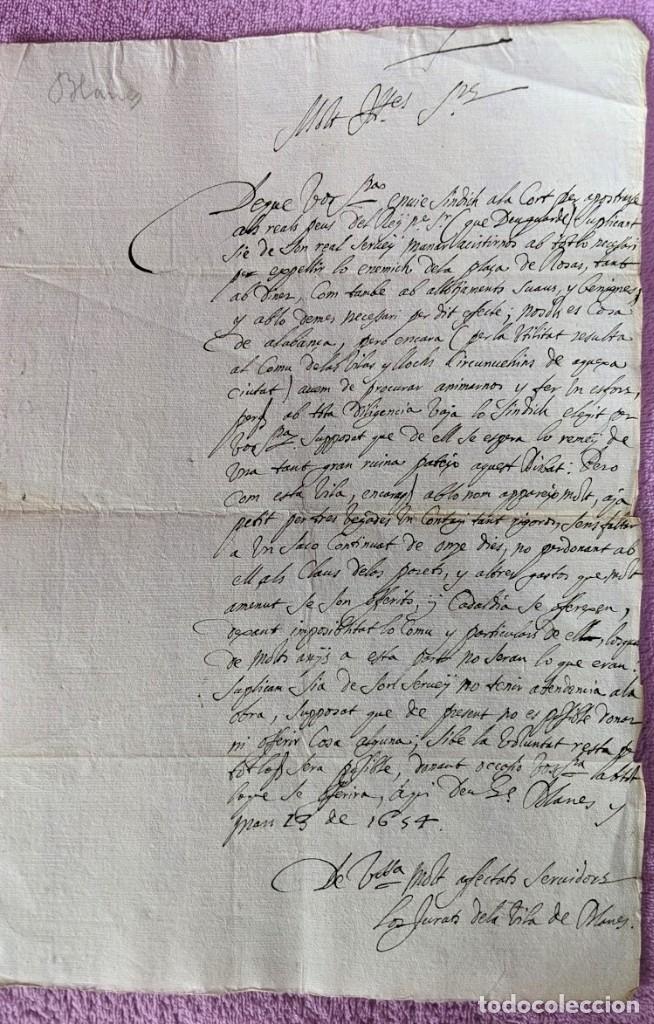 Blanes
Molt Illes Srs
De que Vos Sras envie Sindich a la Cort per apostrarse
als reals peus del Rey ne Sr (que Deu guarde) suplicant
sie de son real servey manar lacistirnos ab tot lo necessari
per expellir lo enemich dela plaça de Rosas, tant
ab diner, com tambe ab allotjaments suaus, y benignes,
y ab lo demes necessari per dit efecte; no sols es cosa
de alabança, pero encara (per la utilitat resulta
al Comu de las Vilas y llochs circunvehins de aquexa
ciutat) avem de procurar animarnos y fer un esfors,
ab tota diligencia vaja lo Sindich elegit per
Vos Sras supposat que de ell se espera lo remey de
una tant gran ruina pateix aquest Bisbat: Pero
com esta Vila, encaras ab lo nom apparexe molt, aja
patit per tres vegades un contagi tant rigoros, sens faltar
a un saco continuat de onze dies, no perdonant ab
ell als claus de los parets, y altres gastos que molt
amenut se son offerits, y cadaldia se offerexen,
la Comu y particulars de ella,
de molts anys a esta part no seran lo que eran:
suplicam sia de sort servey no tenir atendencia a la
obra, supposat que de present no es possible donar
ni offerir cosa alguna; si be la voluntat resta
sera possible, donant occasio Vos Sra
que se offerira, a qui Deu Ge Blanes y
mars 13 de 1654.
De V Sra Molt affectats servidors
Los Jurats dela Vila de Blanes.
todocoleccion